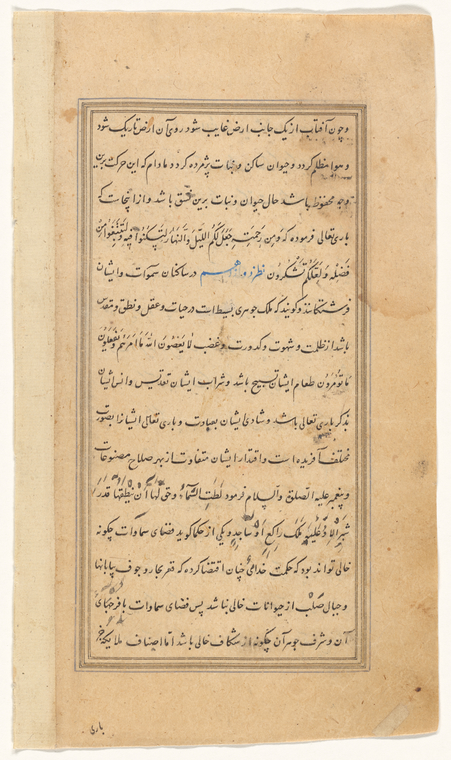 و چون آفتاب از یک جانب ارض غایب شود روی آن ارض تاریک شود
و هوا مظلم کردد و حیوان ساکن و نبات پژمرده کردد و مادام که این حرکت برین
وجه محفوظ باشد حال حیوان و نبات برین نسق باشد و از اینجاست که
باری تعالی فرموده که و من رحمته جعل لکم اللیل و النهار لتسکنوا فیه و لتبتغوا من
فضله و لعلکم تشکرون نظر دوازدهم در ساکنان سموات و ایشان
فرشتکانند و کویند که ملک جوهری بسیط است در حیات و عقل و نطق و مقدس
باشد از ظلمت و شهوت و کدورت و غضب لا یعصون الله ما امرهم و یفعلون
ما یؤمرون طعام ایشان تسبیح باشد و شراب ایشان تقدیس و انس ایشان
بذکر باری تعالی باشد و شادی ایشان بعبادت و باری تعالی ایشانرا بصورت
مختلف آفریده است و اقتدار ایشان متفاوت از بهر صلاح مصنوعات
و پیغمبر علیه الصلوة والسلام فرمود اطت السماء و حق لها ان تئط ما فیها قدر
شبر الا و علیه ملک راکع او ساجد و یکی از حکما کوید فضای سماوات چکونه
خالی تواند بود که حکمت خدای چنان اقتضا کرده که قعر بحار و جوف بیابانها
و جبال صلب از حیوانات خالی نباشد پس فضای سماوات با فرجهای
آن و شرف جوهر آن چکونه از سکان خالی باشد اما اصناف ملایکه جز
باری